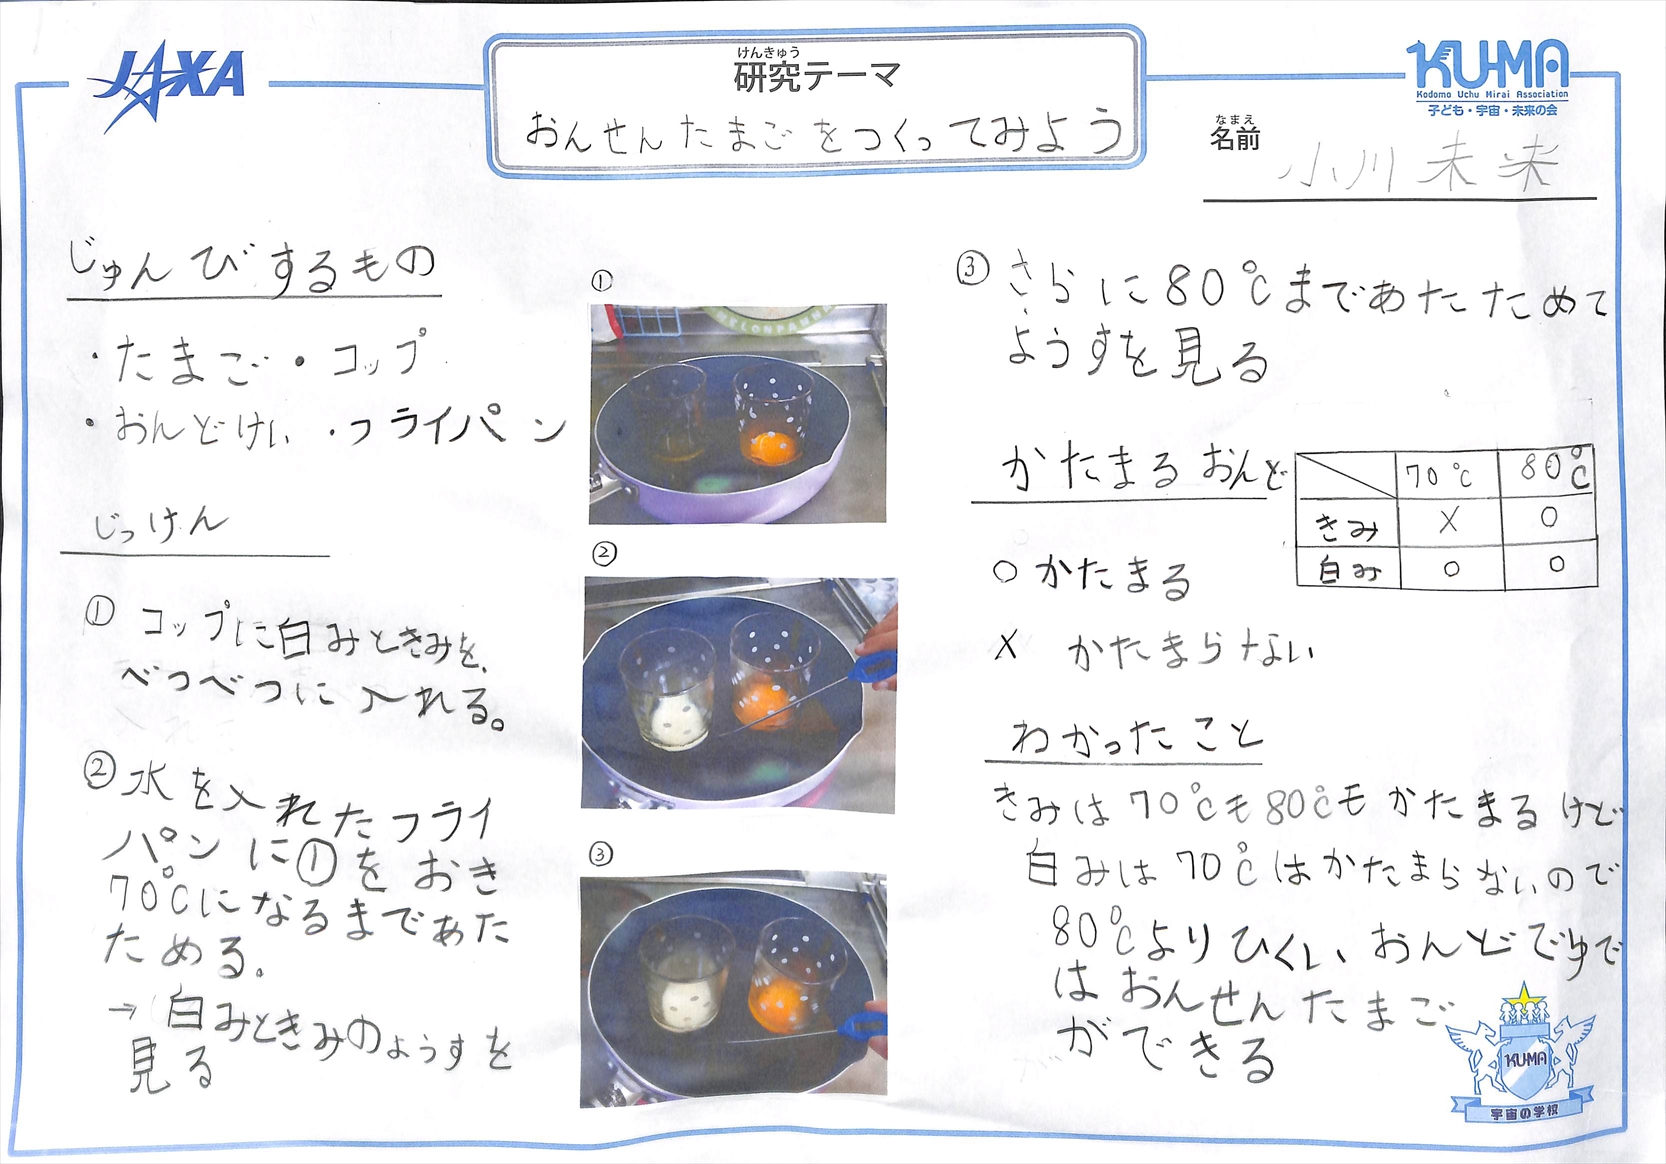 JAXA
けんきゅう
研究テーマ
おんせんたまごをつくってみよう
KU-MA
Kodomo Uchu Mirai Association
子ども・宇宙・未来の会
なまえ
名前
小川未来
じゅんびするもの
・たまご・コップ
・おんどけい・フライパン
じっけん
① コップに白みときみを、
べつべつに入れる。
② 水を入れたフライ
パンに①をおき
70℃になるまであた
ためる。
→白みときみのようすを
見る
①
ELONPANN
②
③
③ さらに80℃まであたためて
ようすを見る
かたまるおんど
70℃ 80℃
きみ X ○
白み ○ ○
○ かたまる
X かたまらない
わかったこと
きみは70℃も80℃もかたまるけど
白みは70℃はかたまらないので
80℃よりひくいおんどでゆで
はおんせんたまご
ができる
KUMA
宇宙の学校